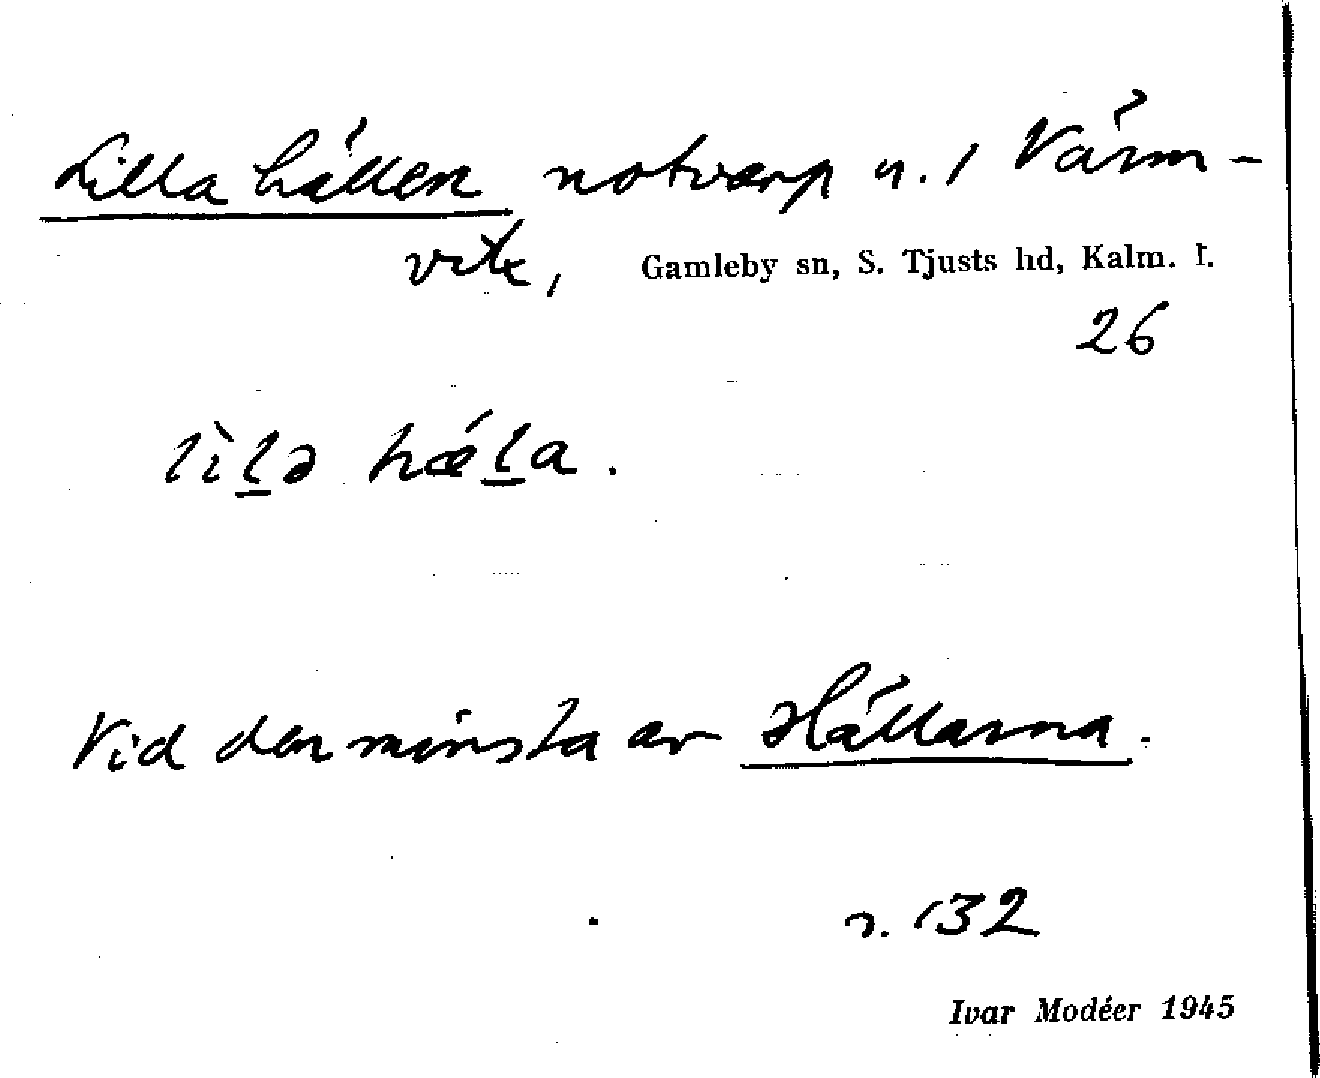 Lilla hällen notvarp n. 1 Värm-
vik, Gamleby sn, S. Tjusts hd, Kalm. l.
26
lìḻə hǽḻa.
Vid den minsta av Hällarna.
s. 132
Ivar Modéer 1945